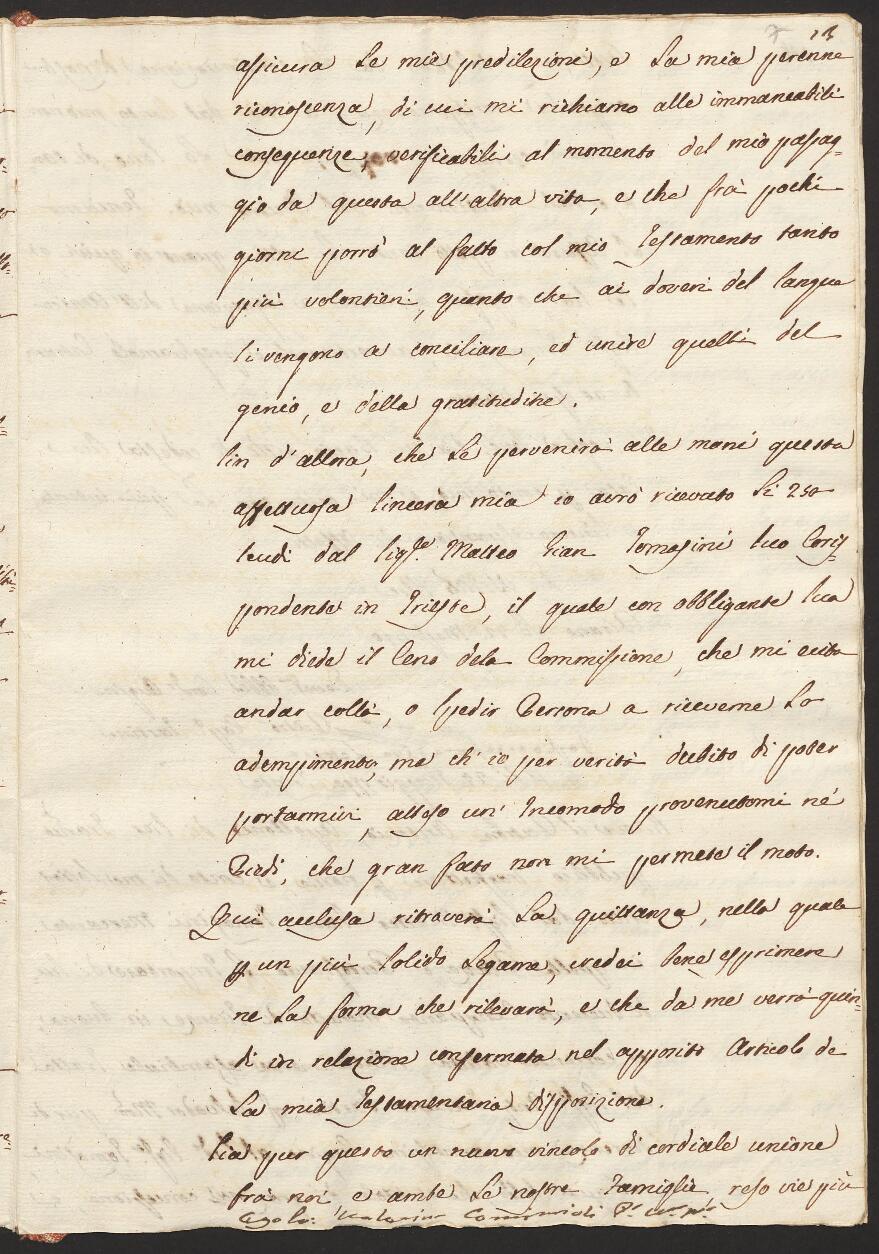 13
assicura le mie predilezioni, e la mia perenne
riconoscenza, di cui mi richiamo alle immancabili
conseguenze, verificabili al momento del mio passag=
gio da questa all'altra vita, e che frà pochi
giorni porrò al fatto col mio Testamento tanto
più volontieri, quanto che ai doveri del sangue
si vengono a conciliare, ed unire quelli del
genio, e della gratitudine.
Sin d'allora, che Le pervenirà alle mani questa
affettuosa sincera mia io avrò ricevuto li 250
scudi dal Sig.r Matteo Gian Tomasini suo Coris=
pondente in Trieste, il quale con obbligante sua
mi diede il Ceno dela Commissione, che mi evita
andar collà, o spedir Persona a riceverne Lo
adempimento, ma ch'io per verità dubito di poter
portarmivi, atteso un' Incomodo provenutomi né
Piedi, che gran fato non mi permete il moto.
Qui acclusa ritroverà La quittanza, nella quale
p un più solido Legame, credei bene esprimere
ne La forma che rilevarà, e che da me verrà quin=
di in relazione confermata nel apposito Articolo de
La mia Testamentaria disposizione.
Sia pur questo un nuovo vincolo di cordiale unione
frà noi e ambe Le nostre Famiglie, reso vie più